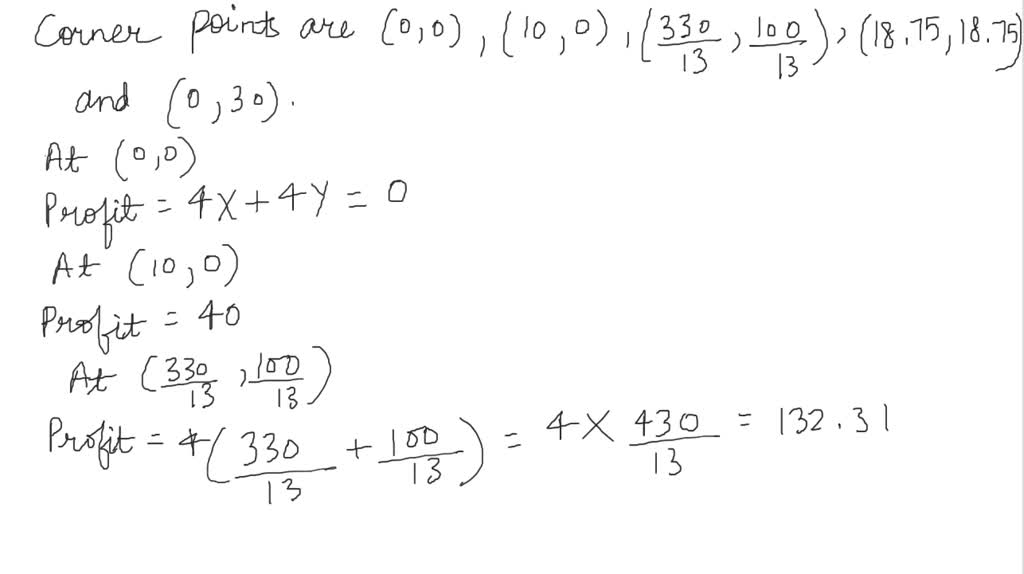 Corner points are (0,0), (10,0), (330/13, 100/13), (18.75, 18.75)
and (0,30).
At (0,0)
Profit = 4X + 4Y = 0
At (10,0)
Profit = 40
At (330/13, 100/13)
Profit = 4(330/13 + 100/13) = 4 × 430/13 = 132.31